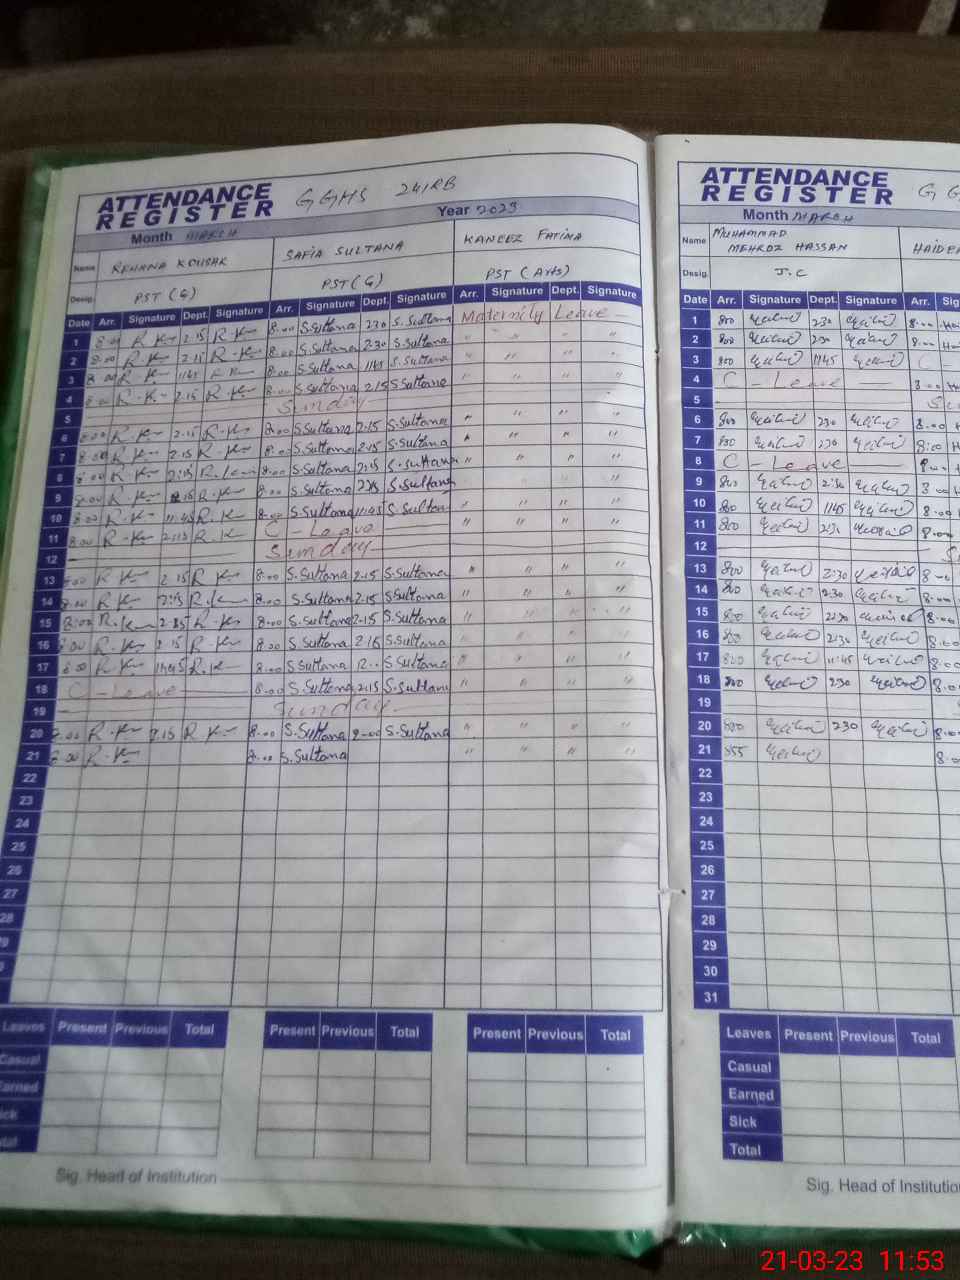 ATTENDANCE REGISTER GGHS 241RB
Month MARCH Year 2023
Name REHANA KOUSAR SAFIA SULTANA KANEEZ FATIMA
Desig. PST (G) PST (G) PST (Arts)
Date Arr. Signature Dept. Signature Arr. Signature Dept. Signature Arr. Signature Dept. Signature
1 8:00 R.K 2.15 R.K 8.00 S.Sultana 2.30 S.Sultana Maternity Leave
2 8:00 R.K 2.15 R.K 8.00 S.Sultana 2.30 S.Sultana " " " "
3 8:00 R.K 1145 R.K 8:00 S.Sultana 1145 S.Sultana " " " "
4 8:00 R.K 2.15 R.K 8.00 S.Sultana 2.15 S.Sultana " " " "
5 Sunday
6 8:00 R.K 2.15 R.K 8:00 S.Sultana 2.15 S.Sultana " " " "
7 8:00 R.K 2.15 R.K 8:00 S.Sultana 2.15 S.Sultana " " " "
8 8:00 R.K 2:15 R.K 8:00 S.Sultana 2:15 S.Sultana " " " "
9 8:00 R.K 2.15 R.K 8:00 S.Sultana S.Sultana " " " "
10 8:00 R.K 11:45 R.K 8:00 S.Sultana 11:45 S.Sultan " " " "
11 8:00 R.K 2:15 R.K C - Leave " " " "
12 Sunday
13 8:00 R.K 2.15 R.K 8.00 S.Sultana 2.15 S.Sultana " " " "
14 8:00 R.K 2:15 R.K 8.00 S.Sultana 2.15 S.Sultana " " " "
15 8:00 R.K R.K 8.00 S.Sultana 2.15 S.Sultana " " " "
16 8:00 R.K 2.15 R.K 8:00 S.Sultana 2.15 S.Sultana " " " "
17 8:00 R.K 11:45 R.K 8:00 S.Sultana 12.. S.Sultana " " " "
18 C - Leave 8.00 S.Sultana 2.15 S.Sultana " " " "
19 Sunday
20 8:00 R.K 2.15 R.K 8.00 S.Sultana 2.00 S.Sultana " " " "
21 8:00 R.K 8.00 S.Sultana " " " "
22
23
24
25
26
27
28
Leaves Present Previous Total Present Previous Total Present Previous Total
Casual
Earned
Sick
Total
Sig. Head of Institution
ATTENDANCE REGISTER
Month MARCH
Name MUHAMMAD MEHROZ HASSAN
Desig. J.C
Date Arr. Signature Dept. Signature Arr.
1 800 230 8:00
2 800 230 8:00
3 800 1145 C -
4 C - Leave
5
6 800 230 8.00
7 230 8:00
8 C - Leave
9 800 2:30
10 800 1145 8:00
11 800 8:00
12
13 800 2:30
14 800 2.30
15 800
16 800
17 800 11:45
18 800 230
19
20 800 230
21 855
22
23
24
25
26
27
28
29
30
31
Leaves Present Previous Total
Casual
Earned
Sick
Total
Sig. Head of Institutio
21-03-23 11:53